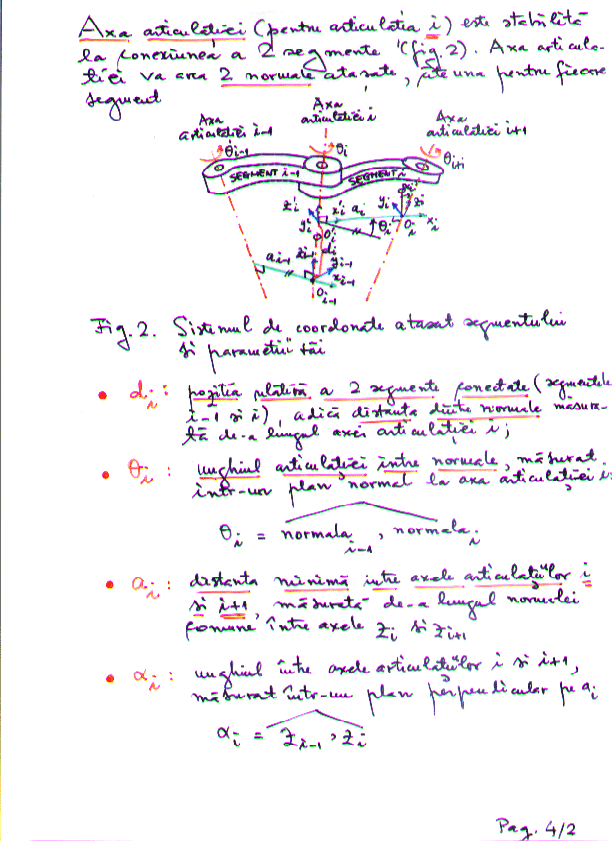 Axa articulației (pentru articulația i) este stabilită
la conexiunea a 2 segmente (fig.2). Axa articula-
ției va avea 2 normale atașate, câte una pentru fiecare
segment
Axa
articulației i-1
Axa
articulației i
Axa
articulației i+1
θi-1
θi
θi+1
SEGMENT i-1
SEGMENT i
z'i
x'i
ai
yi
zi
αi
y'i
O'i
θi
Oi
xi
di
ai-1
zi-1
yi-1
xi-1
Oi-1
Fig. 2. Sistemul de coordonate atașat segmentului
și parametrii săi
• di : poziția relativă a 2 segmente conectate (segmentele
i-1 și i), adică distanța dintre normale măsura-
tă de-a lungul axei articulației i;
• θi : unghiul articulației între normale, măsurat
într-un plan normal la axa articulației i:
θi = normala i-1 , normala i
• ai : distanța minimă între axele articulațiilor i
și i+1, măsurată de-a lungul normalei
comune între axele zi și zi+1
• αi : unghiul între axele articulațiilor i și i+1,
măsurat într-un plan perpendicular pe ai
αi = zi-1 , zi
Pag. 4/2